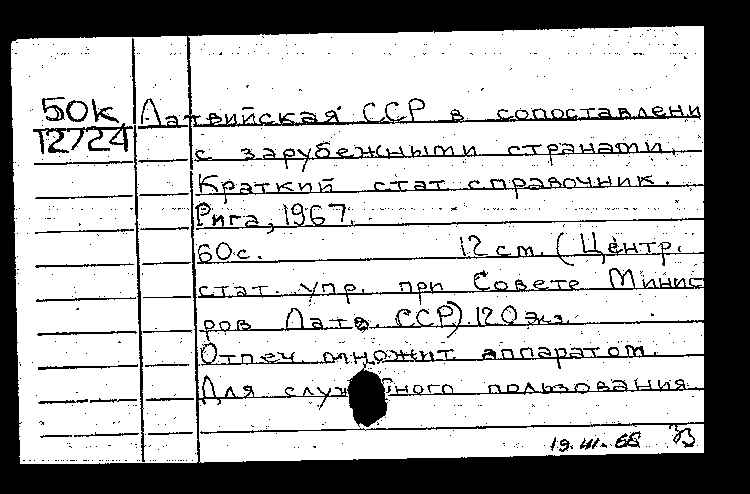 50К Латвийская ССР в сопоставлени
12724 с зарубежными странами.
Краткий стат справочник.
Рига, 1967.
60с. 12 см. (Центр.
стат. упр. при Совете Минис
ров Латв. ССР) 120 экз.
Отпеч множит. аппаратом.
Для служ ного пользования
19.III.68